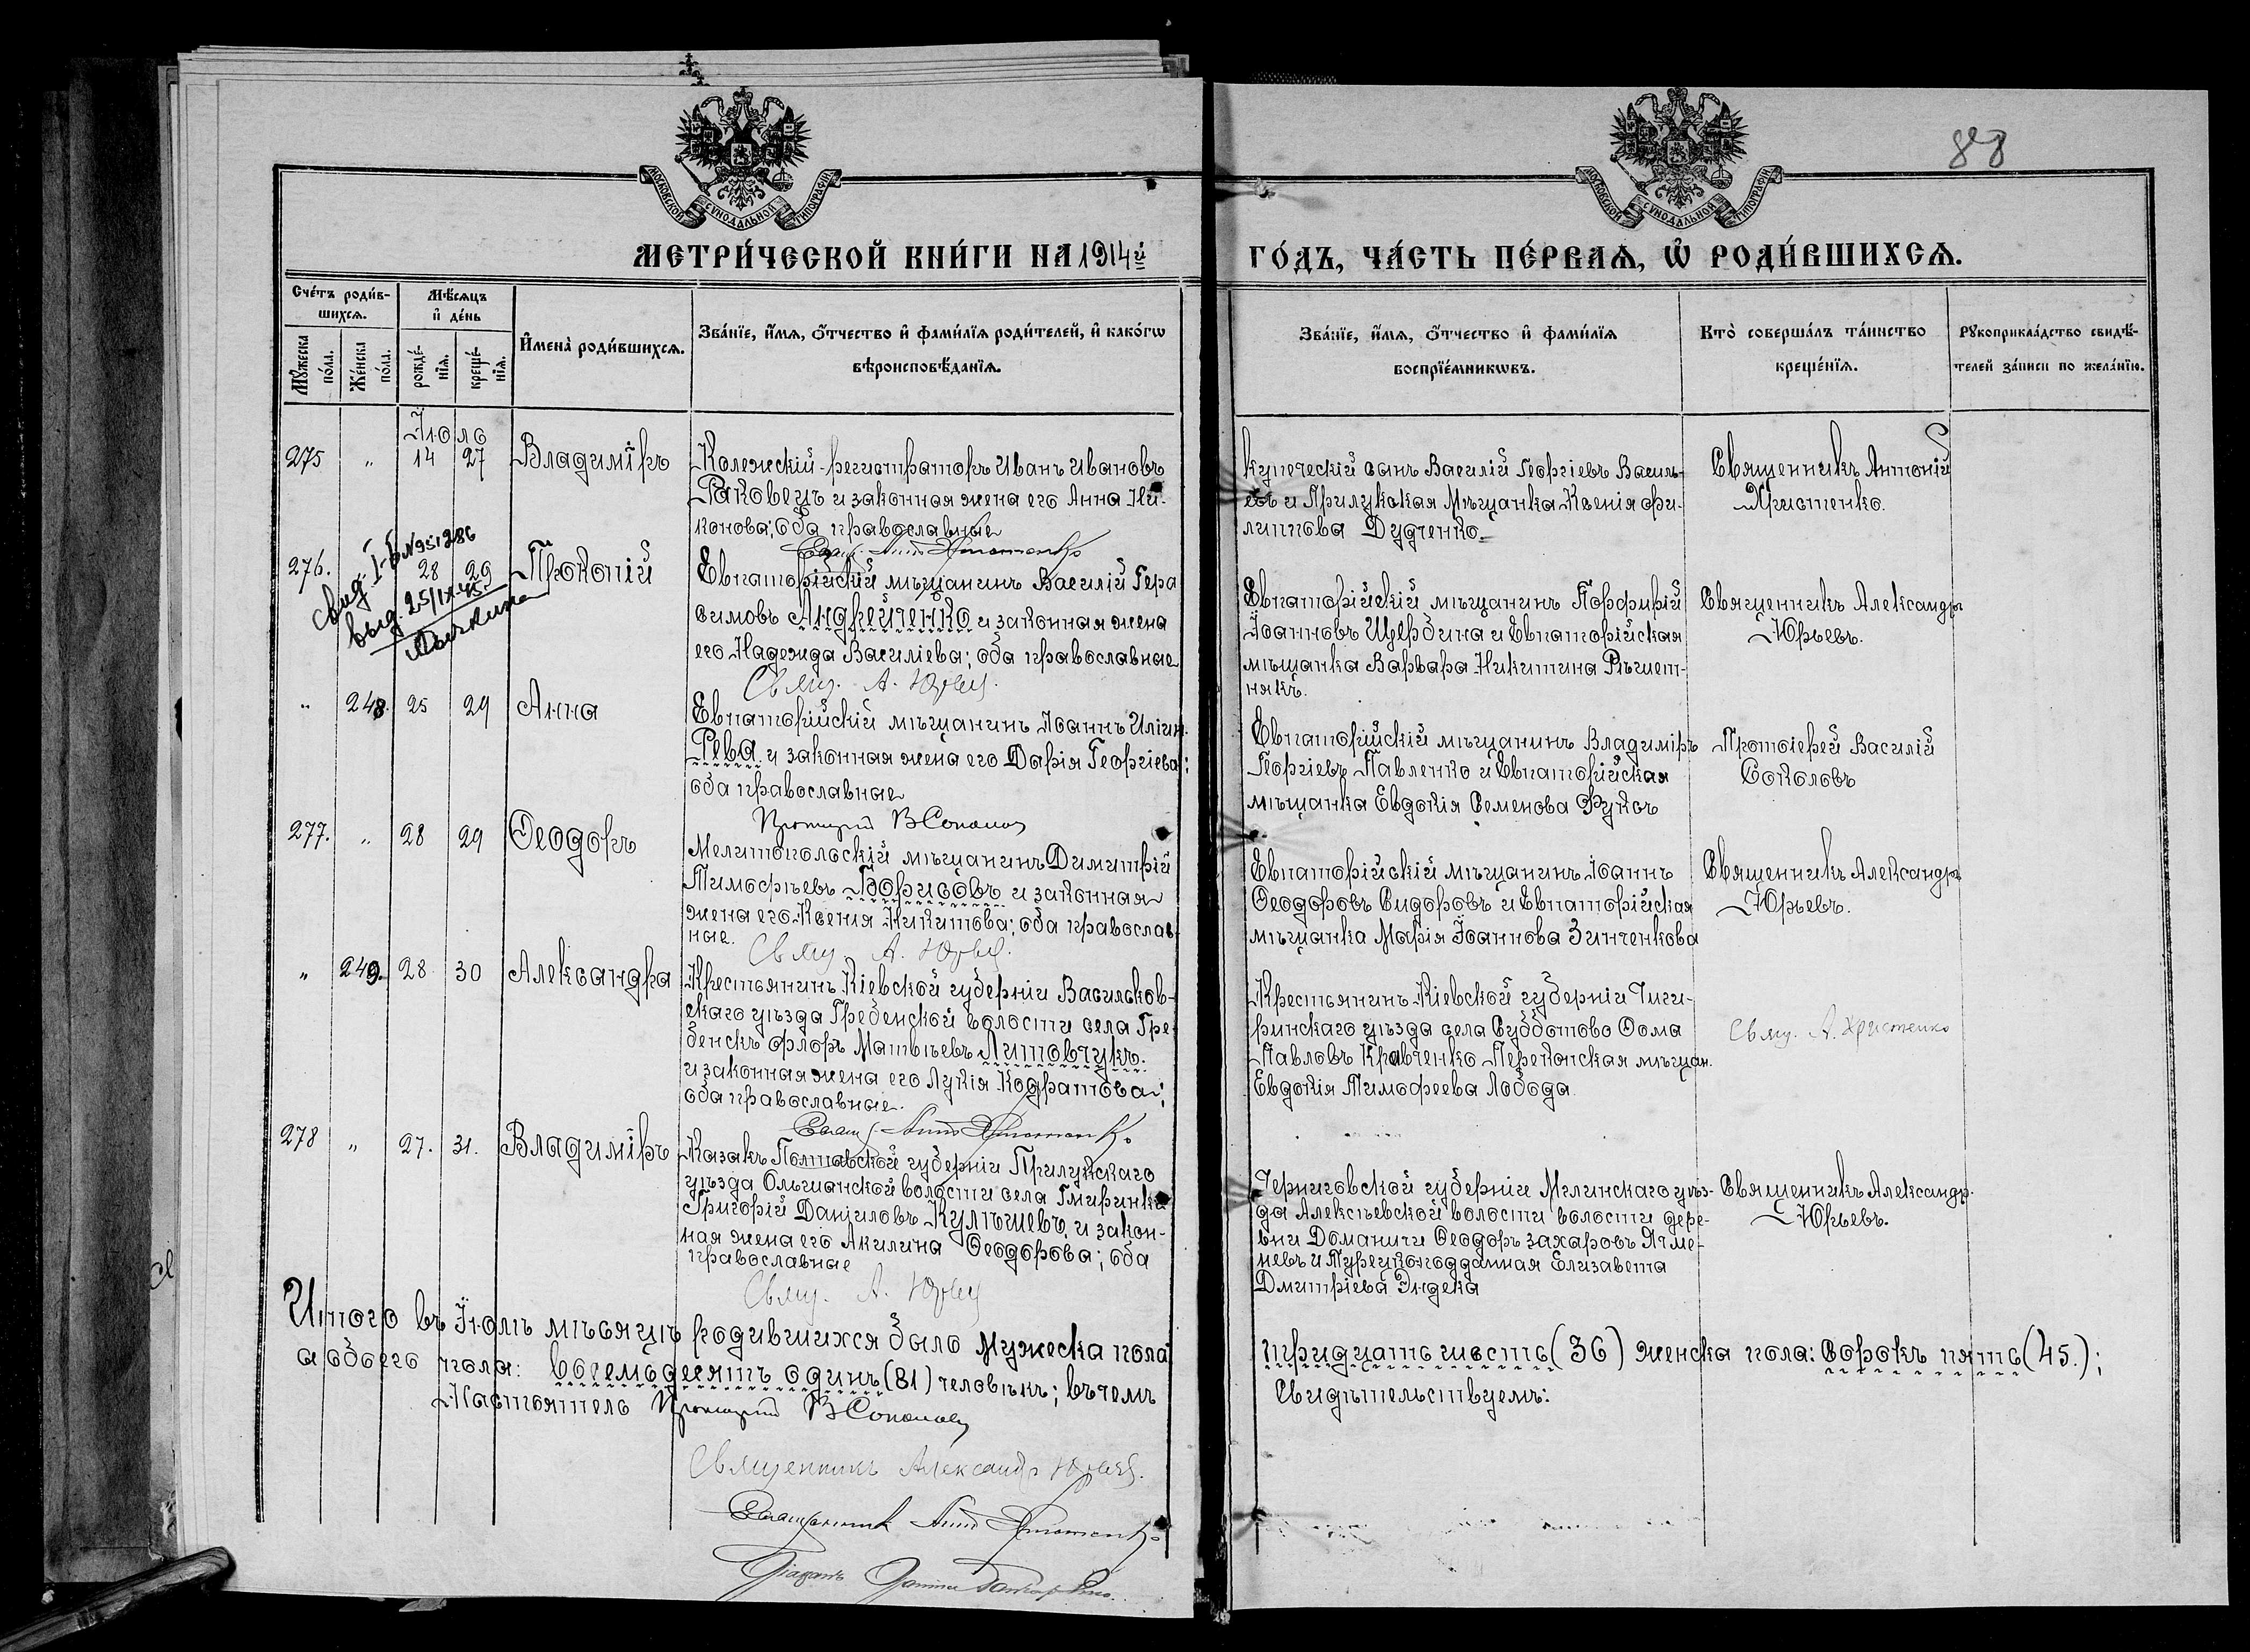 88
МОСКОВСКОЙ СѴНОДАЛЬНОЙ ТИПОГРАФІИ
МОСКОВСКОЙ СѴНОДАЛЬНОЙ ТИПОГРАФІИ
МЕТРИ́ЧЕСКОЙ КНИ́ГИ НА 1914й
ГО́ДЪ, ЧА́СТЬ ПЕ́РВАѦ, Ѡ҆ РОДИ́ВШИХСѦ.
Сче́тъ роди́в-
шихсѧ.
Мꙋ́жеска
по́ла.
Же́нска
по́ла.
Мѣ́сѧцъ
и҆ де́нь
рожде́-
нїѧ.
креще́-
нїѧ.
И҆мена̀ роди́вшихсѧ.
Зва́нїе, и҆́мѧ, ѻ҆́тчество и҆ фами́лїѧ роди́телей, и҆ како́гѡ
вѣроисповѣ́данїѧ.
Зва́нїе, и҆́мѧ, ѻ҆́тчество и҆ фами́лїѧ
воспрїе́мникѡвъ.
Кто̀ соверша́лъ та́инство
креще́нїѧ.
Рꙋкоприкла́дство свидѣ́-
телей за́писи по жела́нїю.
Июль
275 " 14 27 Владиміръ
Колежскій-регистраторъ Иванъ Ивановъ
Раковецъ и законная жена его Анна Ни-
конова; оба православные
Свящ. Антъ Христенко
купеческій сынъ Василій Георгіевъ Василь-
евъ и Прилукская Мѣщанка Ксенія Фи-
липпова Дудченко
Священникъ Антоній
Христенко.
276. 28 29 Прокопій
свид. I-Б №951286
выд. 25/IX-45
Евпаторійскій мѣщанинъ Василій Гера
симовъ Андрейченко и законная жена
его Надежда Василіева; оба православные
Свящ. А. Юрьев.
Евпаторійскій мѣщанинъ Порфирій
Іоанновъ Щербина и Евпаторійская
мѣщанка Варвара Никитина Рѣшет-
някъ.
Священникъ Александръ
Юрьевъ.
" 248. 25 29 Анна
Евпаторійскій мѣщанинъ Іоаннъ Иліин.
Рева и законная жена его Дарія Георгіева;
оба православные
Протоіерей В Соколов
Евпаторійскій мѣщанинъ Владиміръ
Георгіевъ Павленко и Евпаторійская
мѣщанка Евдокія Семенова Фуксъ
Протоіерей Василій
Соколовъ
277. " 28 29 Ѳеодоръ
Мелитопольскій мѣщанинъ Димитрій
Тимофѣевъ Борисовъ и законная
жена его Ксенія Никитова; оба православ-
ные.
Свящ А. Юрьев.
Евпаторійскій мѣщанинъ Іоаннъ
Ѳеодоровъ Сидоровъ и Евпаторійская
мѣщанка Марія Іоаннова Зинченкова
Священникъ Александръ
Юрьевъ.
" 249. 28 30 Александра
Крестьянинъ Кіевской губерніи Васильков-
скаго уѣзда Гребенской волости села Гре-
бенскъ Флоръ Матвѣевъ Литовчукъ.
и законная жена его Лукія Кодратова;
оба православные.
Свящ. Антъ Христенко
Крестьянинъ Кіевской губерніи Чиги-
ринскаго уѣзда села Субботово Ѳома
Павловъ Кравченко Перекопская мѣщан.
Евдокія Тимофеева Лобода
Свящ. А. Христенко
278 " 27. 31. Владиміръ
Казакъ Полтавской губерніи Прилукскаго
уѣзда Ольшанской волости села Гмиринки
Григорій Даніиловъ Кулѣшевъ, и закон-
ная жена его Акилина Ѳеодорова; оба
православные
Свящ. А. Юрьев
Черниговской губерніи Мглинскаго уѣз-
да Алексѣевской волости волости дере-
вни Доманичи Ѳеодоръ захаровъ Ячме-
невъ и Турецкоподданная Елизавета
Дмитріева Эндека
Священникъ Александр.
Юрьевъ.
Итого въ Іюлѣ мѣсяцѣ родившихся было Мужеска пола
тридцать шесть (36) женска пола: Сорокъ пять (45.);
а обоего пола: восемьдесятъ одинъ (81) человѣкъ; въ чемъ
Свидѣтельствуемъ:
Настоятель Протоіерей В Соколов
Священникъ Александр Юрьев.
Священник Антъ Христенко